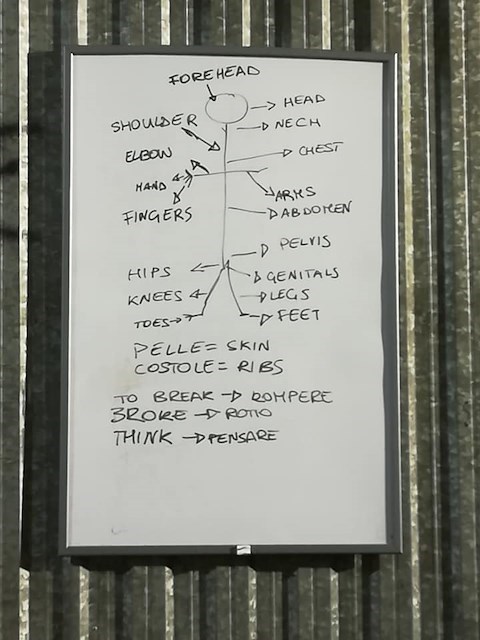 FOREHEAD
HEAD
SHOULDER
NECH
ELBOW
CHEST
HAND
ARMS
FINGERS
ABDOMEN
PELVIS
HIPS
GENITALS
KNEES
LEGS
TOES
FEET
PELLE = SKIN
COSTOLE = RIBS
TO BREAK → ROMPERE
BROKE → ROTTO
THINK → PENSARE